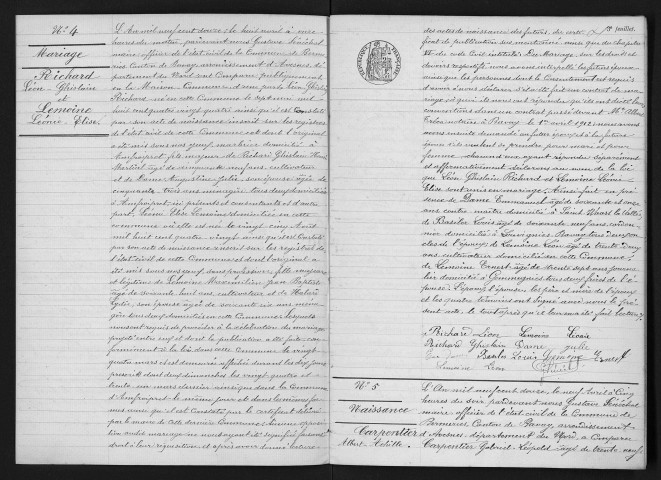 N° 4
Mariage
Richard
Léon-Ghislain
et
Lemoine
Léonie Elise.
L'an mil neuf cent douze, le huit avril à onze
heures du matin, par devant nous Gustave Sénéchal
maire, officier de l'état civil de la Commune de
Canton de Bavay, arrondissement d'Avesnes, dé-
partement du Nord, ont comparu publiquement
en la Maison Commune, d'une part, Léon Ghislain
Richard, né en cette Commune le sept
huit cent quatre vingt quatre ainsi qu'il est constaté
par son acte de naissance inscrit sur les registres
de l'état civil de cette Commune et dont l'original
a été mis sous nos yeux, domicilié à
Amfroipret, fils majeur de Richard Ghislain
âgé de cinquante neuf ans, cultivateur
et de Dame Augustine Julie, son épouse âgée de
cinquante trois ans, ménagère, tous deux domiciliés
à Amfroipret, ici présents et consentants et d'autre
part, Léonie Elise Lemoine, domiciliée en cette
commune où elle est née le vingt cinq Avril
mil huit cent quatre vingt ainsi qu'il est Constaté
par son acte de naissance inscrit sur les registres de
l'état civil de cette Commune et dont l'original a
été mis sous nos yeux, sans profession, fille majeure
et légitime de Lemoine Maximilien Jean Baptiste
âgé de soixante huit ans, cultivateur et de
son épouse âgée de soixante six ans, ména-
gère, tous deux domiciliés en cette Commune, lesquels
nous ont requis de procéder à la célébration du mariage
projeté entre eux et dont la publication a été faite con-
formément à la loi dans cette Commune le vingt
quatre mars
trente un mars dernier ainsi que dans la Commune
d'Amfroipret le même jour et dans la même for-
me ainsi que il est Constaté par le certificat délivré
par le maire de cette dernière Commune. Aucune opposi-
tion audit mariage ne nous ayant été signifiée, faisant
droit à leur réquisition et après avoir donné lecture
des actes de naissances des futurs, du certi-
ficat de publication sus mentionné ainsi que du chapitre
VI du code civil intitulé : Du Mariage, sur les droits et
devoirs respectifs, nous avons interpellé les futurs époux
ainsi que les personnes dont le Consentement est requis
d'avoir à nous déclarer s'il a été fait un contrat de ma-
riage et qui ils nous ont répondu qu'ils ont arrêté les
conventions dans un contrat passé devant Me
notaire à Bavay le 1er avril 1912. Nous avons
ensuite demandé au futur époux et à la future
épouse s'ils veulent se prendre pour mari et pour
femme, chacun d'eux ayant répondu séparément
et affirmativement, déclarons au nom de la loi
que Léon Ghislain Richard et Lemoine Léonie
Elise sont unis en mariage. Ainsi fait en pré-
sence de Dame Emmanuel âgé de soixante et onze
ans
de Basilier Louis âgé de soixante neuf ans,
domicilié à
oncles de l'époux ; de Lemoine Léon âgé de trente
ans, cultivateur domicilié en cette Commune ;
de Lemoine Ernest âgé de trente sept ans,
domicilié à Gommegnies, tous deux frères de l'é-
pouse. L'époux, l'épouse, les père et mère de l'époux
et les quatre témoins ont signé avec nous le pré-
sent acte, après qu'il leur en a été fait lecture.
Richard Léon Lemoine Léonie
Richard Ghislain Dame Julie
Basilier Louis Lemoine Ernest
Lemoine Léon Sénéchal
N° 5
Naissance
Carpentier
Albert Achille.
L'An mil neuf cent douze, le neuf avril à cinq
heures du soir, par devant nous Gustave Sénéchal
maire, officier de l'état civil de la Commune de
Canton de Bavay, arrondissement
d'Avesnes, département du Nord, a comparu
Carpentier Gabriel Léopold âgé de trente neuf